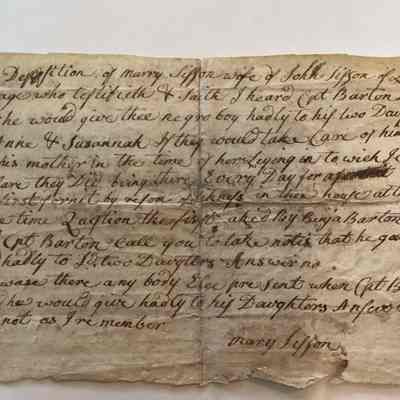 Deposition of marry Sisson wife of John Sisson of
age who testifieth & saith I heard Cpt Barton
he would give thee negro boy hadly to his two
Anne & Susannah If they would take Care of him
his mother in the time of her Lying in to wich
they Did being there Every Day for a
by reson of in thee house at
time Question the first asked by Benja Barton
Cpt Barton Call you to take notis that he
hadly to sd two Daughters Answer no
wase there any body Else present when Cpt
he would give hadly to his Daughters Answer
not as I remember
mary Sisson